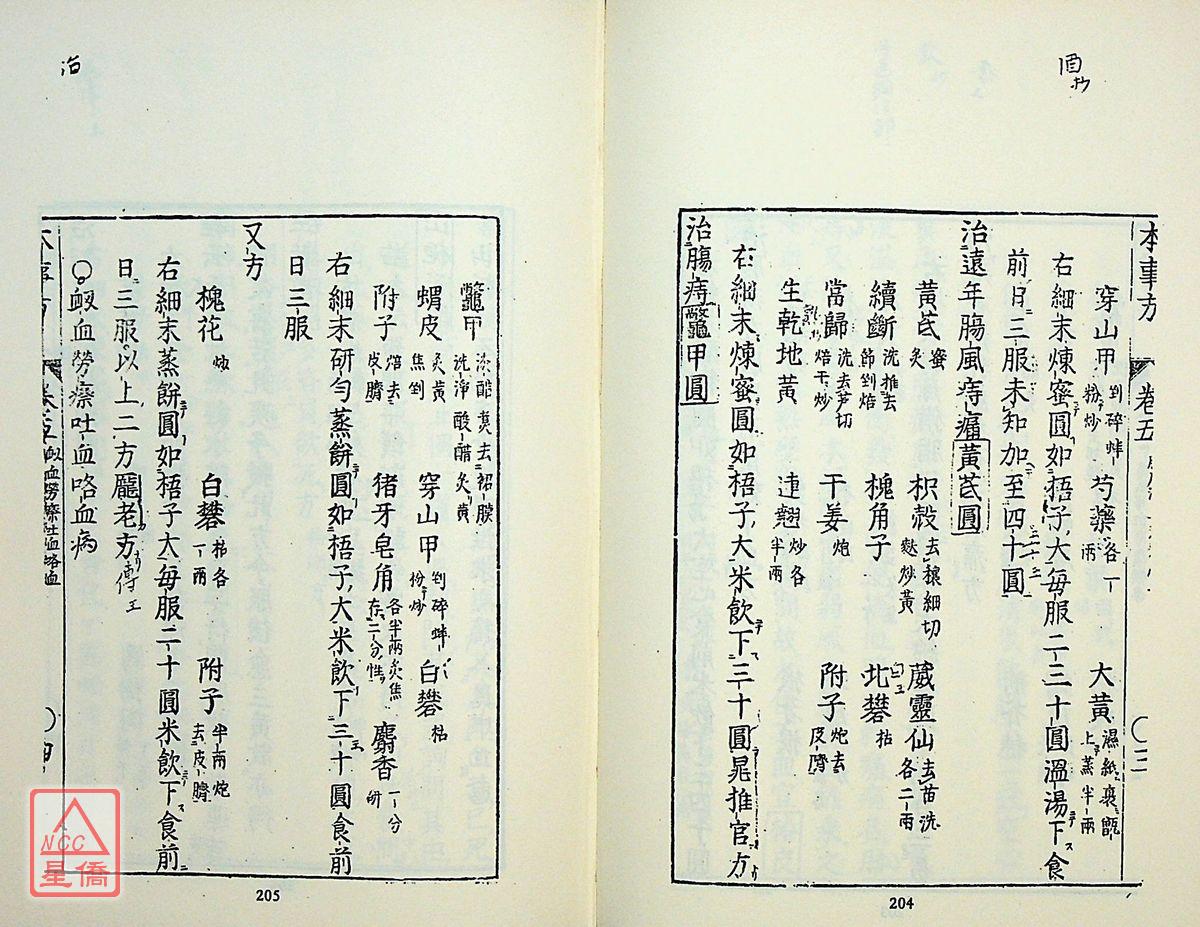 本事方 卷五 〇三
穿山甲 剉碎蚌粉炒 芍藥 各一兩 大黃 濕紙裹甑上蒸半兩
右細末煉蜜圓如梧子大每服二三十圓溫湯下食
前日三服未知加至四十圓
治遠年腸風痔瘻黃芪圓
黃芪 蜜炙 枳殼 去穰細切麩炒黃 葳靈仙 去苗洗
續斷 洗推去節剉焙 槐角子 北礬 枯各二兩
當歸 洗去芦切焙干炒 干姜 炮 附子 炮去皮臍
生乾地黃 連翹 炒各半兩
右細末煉蜜圓如梧子大米飲下三十圓晁推官方
治腸痔鼈甲圓
204
治
鼈甲 淡醋煮去裙膜洗淨酸醋炙黃
蝟皮 炙黃焦剉 穿山甲 剉碎蚌粉炒 白礬 枯
附子 焙去皮臍 猪牙皂角 各半兩炙焦存二分性 麝香 一分研
右細末研勻蒸餅圓如梧子大米飲下三十圓食前
日三服
又方
槐花 炒 白礬 枯各一兩 附子 半兩炮去皮臍
右細末蒸餅圓如梧子大每服二十圓米飲下食前
日三服以上二方龐老方傳
〇衂血勞瘵吐血咯血病
本事方 卷五 衂血勞瘵吐血咯血 〇四
205
NCC
星僑